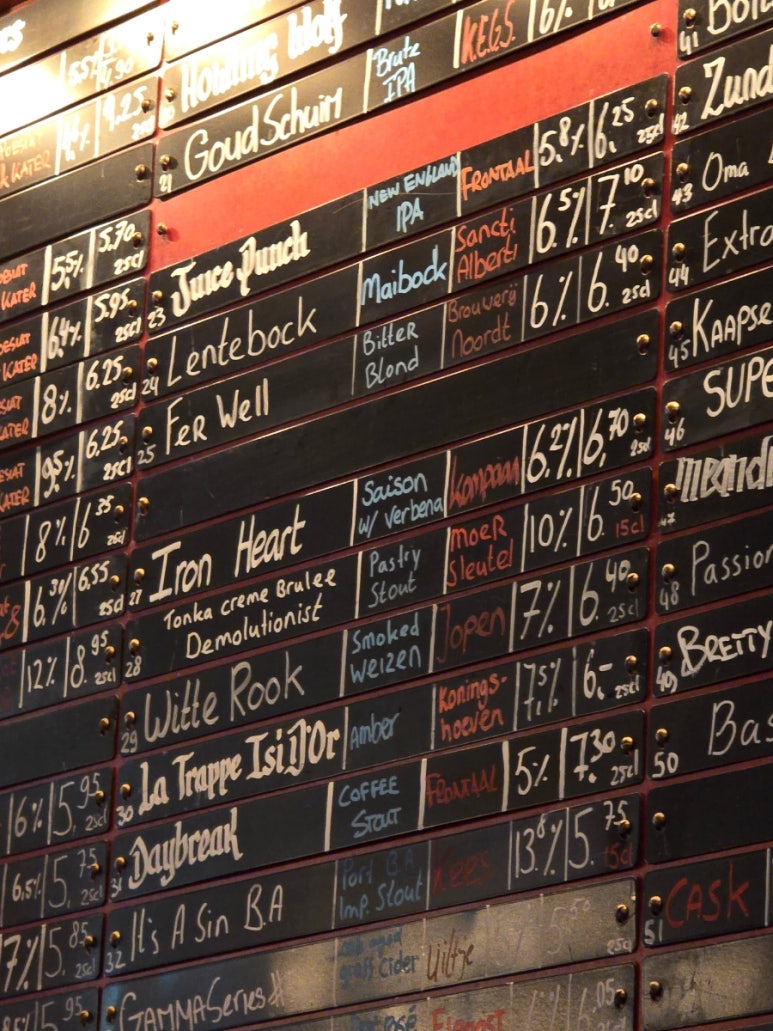 5.5% 5.70 25cl
6.4% 5.95 25cl
8% 6.25 25cl
9.5% 6.25 25cl
8% 6.35 25cl
6.3% 6.55 25cl
12% 8.95 25cl
6% 5.95 25cl
6.5% 5.75 25cl
7% 5.85 25cl
5.95
Howling Wolf
21 GoudSchuim Brute IPA K.E.G.S. 6%
23 Juice Punch New England IPA Frontaal 5.8% 6.25 25cl
24 Lentebock Maibock Sancti Alberti 6.5% 7.10 25cl
25 Fer Well Bitter Blond Brouwerij Noordt 6% 6.40 25cl
27 Iron Heart Saison w/ Verbena Kompaan 6.2% 6.70 25cl
28 Tonka creme Brulee Demolutionist Pastry Stout moeR Sleutel 10% 6.50 15cl
29 Witte Rook Smoked Weizen Jopen 7% 6.40 25cl
30 La Trappe Isid'Or Amber Konings-hoeven 7.5% 6,- 25cl
31 Daybreak Coffee Stout Frontaal 5% 7.30 25cl
32 It's A Sin B.A Port BA Imp. Stout Kees 13.8% 5.75 15cl
GAMMA Series Cider Uiltje 25cl
41
42 Zund
43 Oma
44 Extra
45 Kaapse
46 SUPE
47
48 Passion
49 Bretty
50 Bas
51 CASK